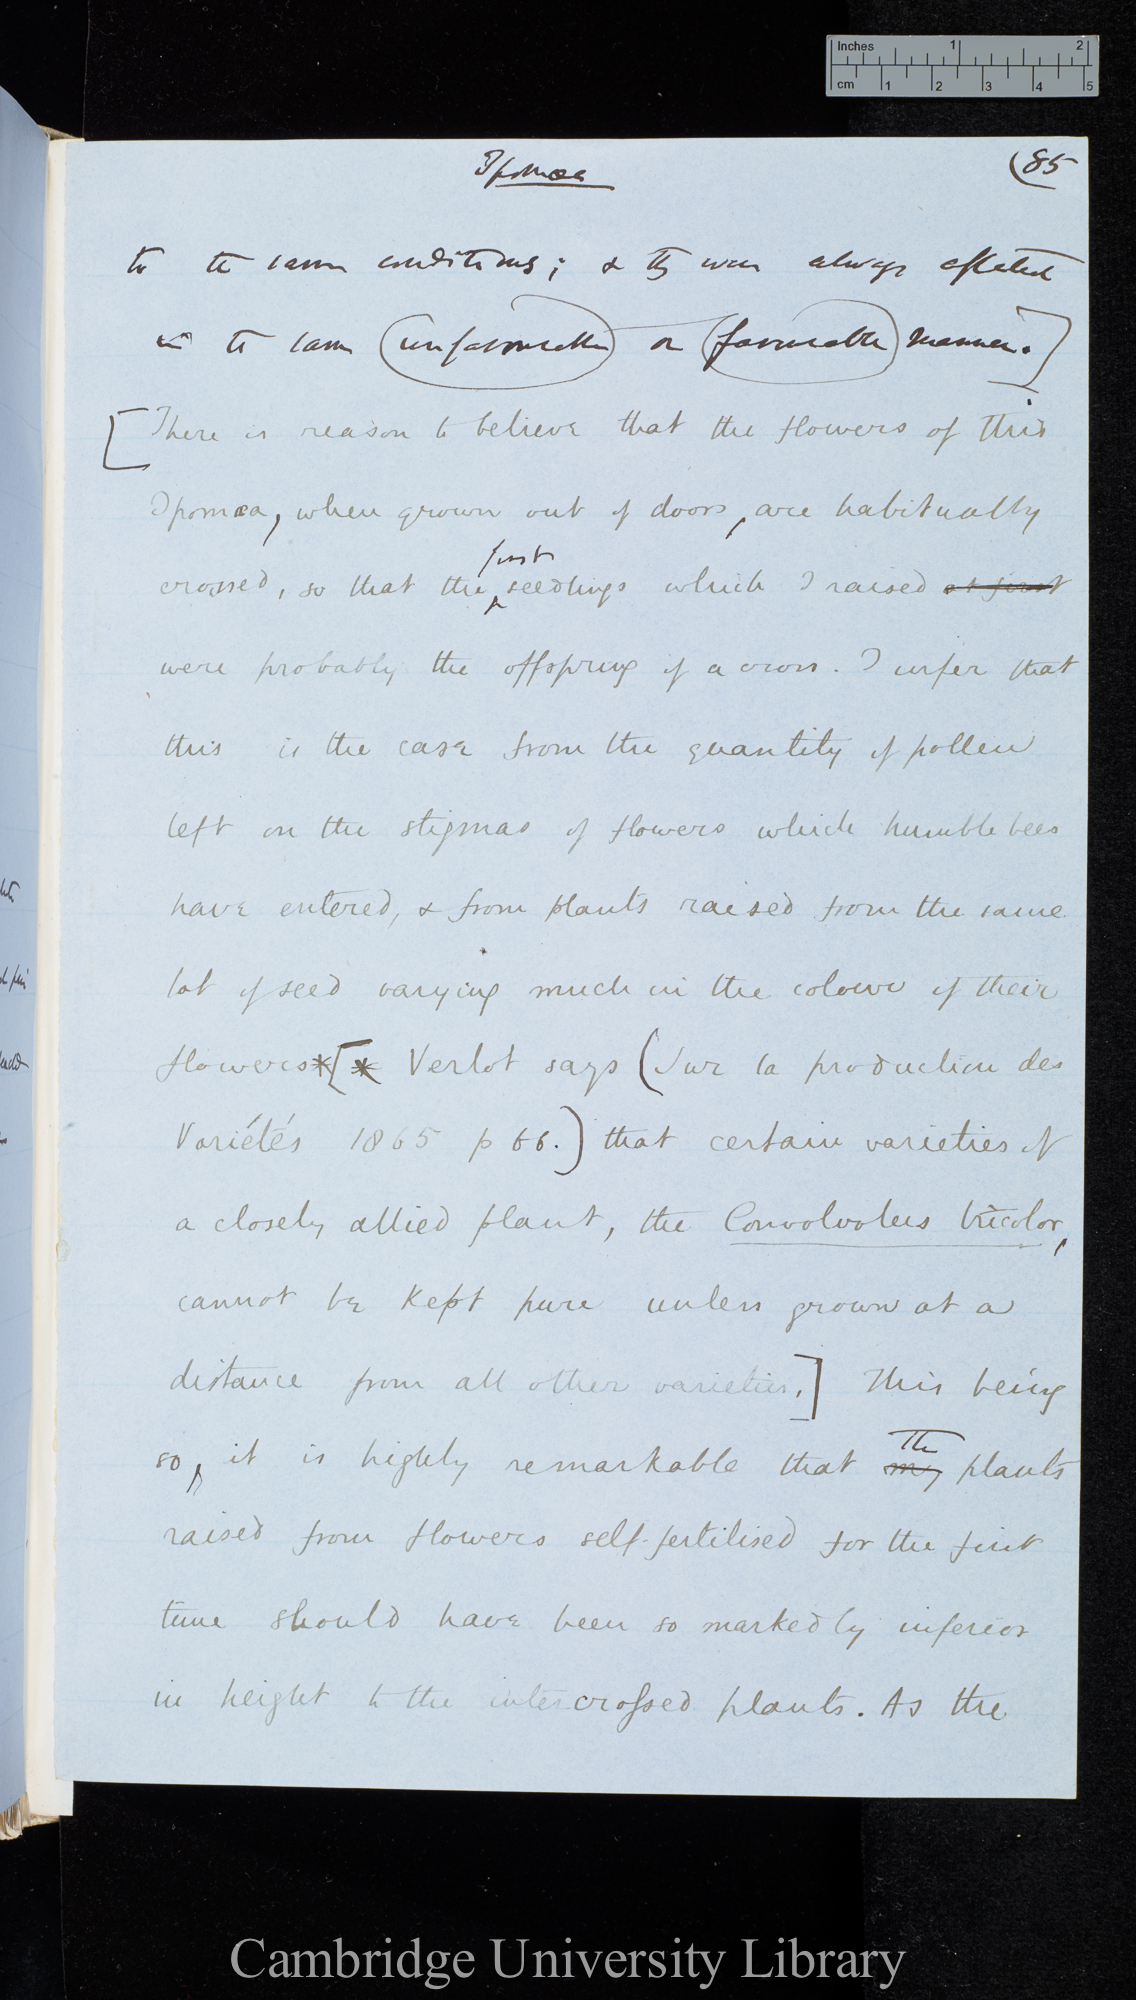 Inches 1 2
cm 1 2 3 4 5
Ipomœa (85
to the same conditions; & they were always affected
in the same (unfavourable) or (favourable) manner.]
[There is reason to believe that the flowers of this
Ipomæa, when grown out of doors, are habitually
first
crossed, so that the seedlings which I raised at first
were probably the offspring of a cross. I infer that
this is the case from the quantity of pollen
left on the stigmas of flowers which humble bees
have entered, & from plants raised from the same
lot of seed varying much in the colour of their
flowers*[* Verlot says (Sur la production des
Variétés 1865 p 66.) that certain varieties of
a closely allied plant, the Convolvolus tricolor,
cannot be kept pure unless grown at a
distance from all other varieties.] This being
the
so, it is highly remarkable that my plants
raised from flowers self-fertilised for the first
time should have been so markedly inferior
in height to the intercrossed plants. As the
Cambridge University Library